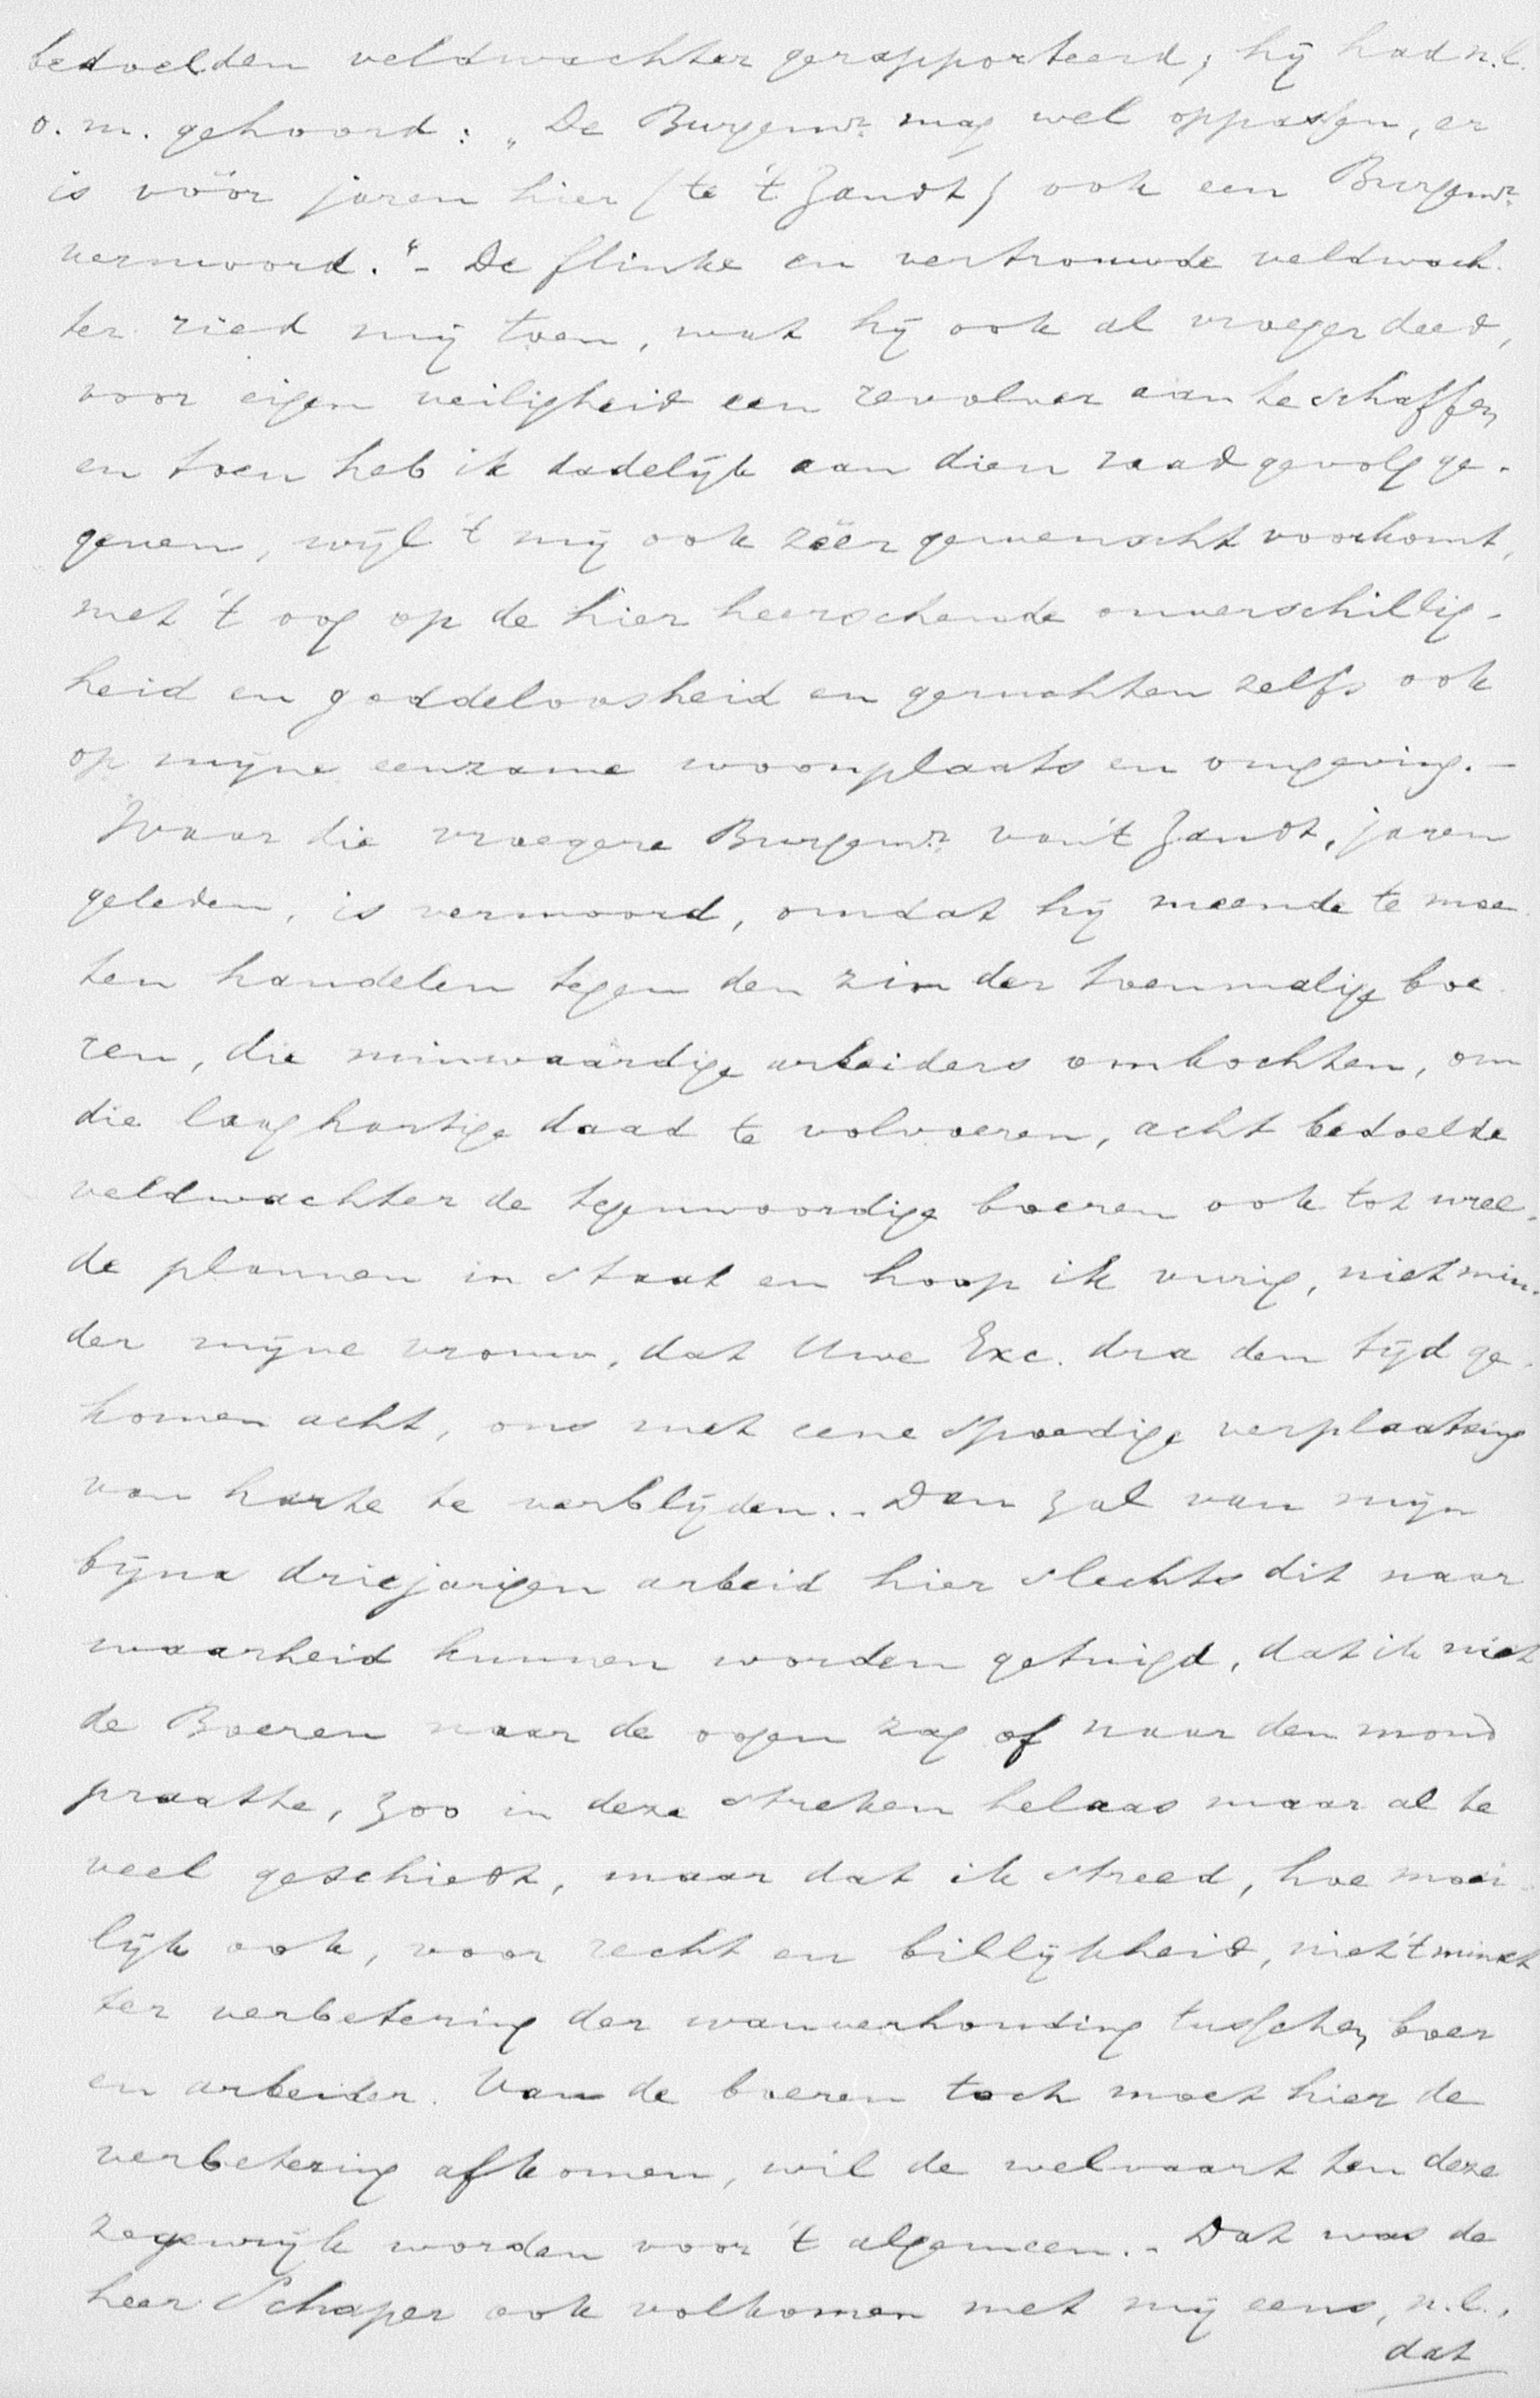 bedoelden veldwachter gerapporteerd; hij had n.l.
o.m. gehoord: „De Burgemr. mag wel oppassen, er
is vóór jaren hier (te 't Zandt) ook een Burgemr.
vermoord."- De flinke en vertrouwde veldwach-
ter ried mij toen, wat hij ook al vroeger deed,
voor eigen veiligheid een revolver aan te schaffen,
en toen heb ik dadelijk aan dien raad gevolg ge-
geven, wijl 't mij ook zéér gewenscht voorkomt,
met 't oog op de hier heerschende onverschillig-
heid en goddeloosheid en geruchten zelfs ook
op mijne eenzame woonplaats en omgeving.-
Waar die vroegere Burgemr. van 't Zandt, jaren
geleden, is vermoord, omdat hij meende te moe
ten handelen tegen den zin der toenmalige boe
ren, die minwaardige arbeiders omkochten, om
die laaghartige daad te volvoeren, acht bedoelde
veldwachter de tegenwoordige boeren ook tot wree-
de plannen in staat en hoop ik vurig, niet min-
der mijne vrouw, dat Uwe Exc. dra den tijd ge-
komen acht, ons met eene spoedige verplaatsing
van harte te verblijden.- Dan zal van mijn
bijna driejarigen arbeid hier slechts dit naar
waarheid kunnen worden getuigd, dat ik niet
de Boeren naar de oogen zag of naar den mond
praatte, zoo in deze streken helaas maar al te
veel geschiedt, maar dat ik streed, hoe moei-
lijk ook, voor recht en billijkheid, niet 't minst
ter verbetering der wanverhouding tusschen boer
en arbeider. Van de boeren toch moet hier de
verbetering afkomen, wil de welvaart ten deze
zegenrijk worden voor 't algemeen.- Dat was de
heer Schaper ook volkomen met mij eens, n.l.,
dat